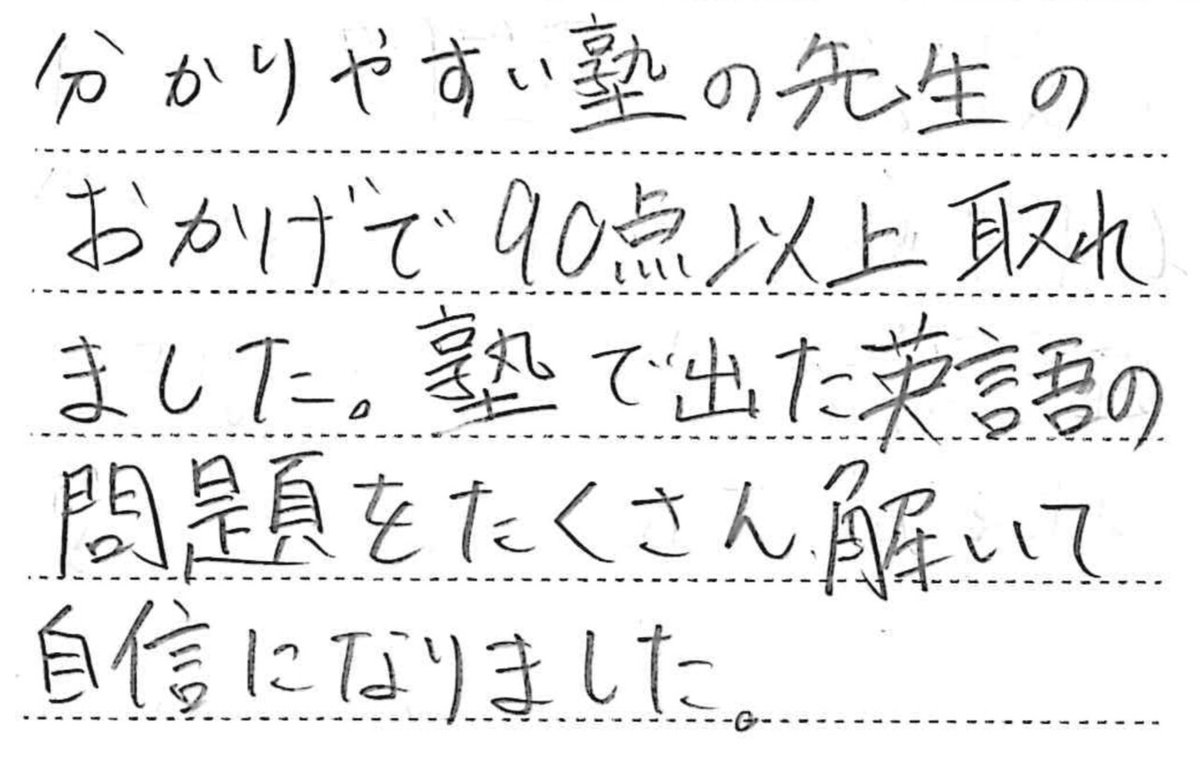 分かりやすい塾の先生の
おかげで90点以上取れ
ました。塾で出た英語の
問題をたくさん解いて
自信になりました。